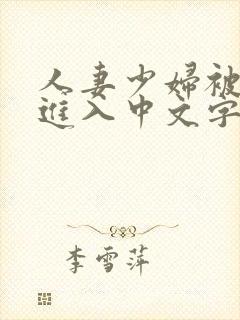 人妻少婦被
進入中文字
李雪萍